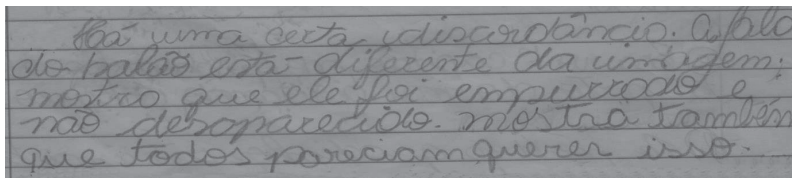 Há uma certa discordância. A fala
do balão está diferente da imagem.
mostra que ele foi empurrado e
não desaparecido. mostra também
que todos pareciam querer isso.